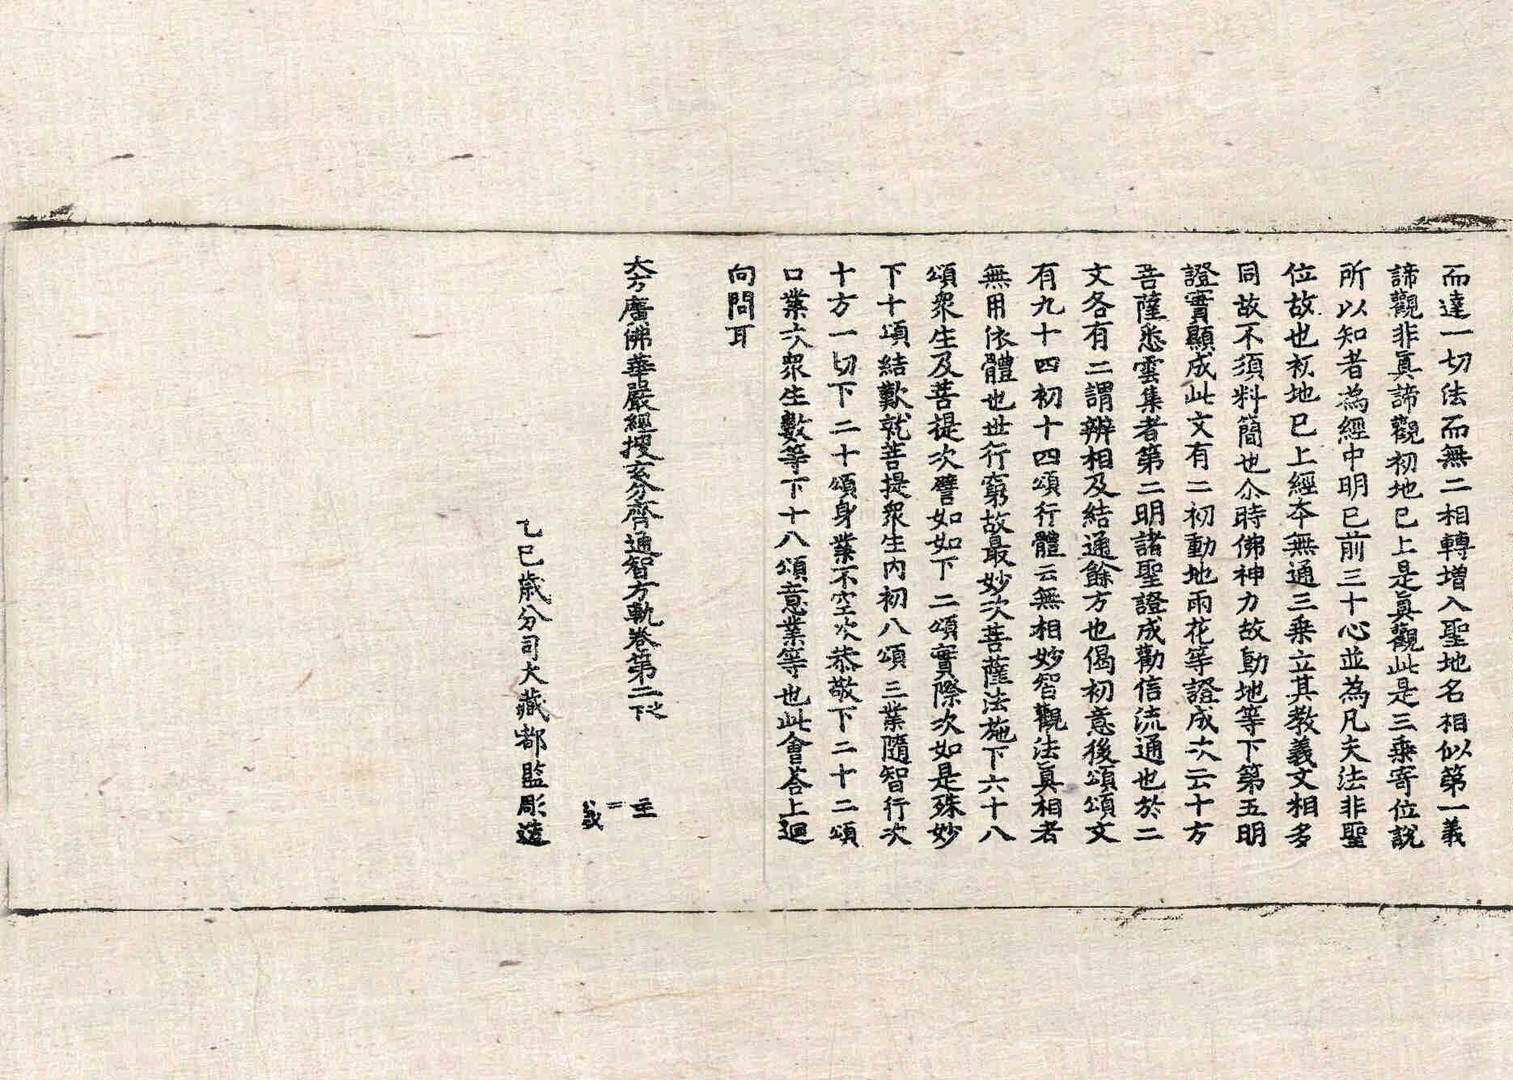 而達一切法而無二相轉增入聖地名相似第一義
諦觀非真諦觀初地已上是真觀此是三乘寄位說
所以知者為經中明已前三十心並為凡夫法非聖
位故也初地已上經夲無通三乘立其教義文相多
同故不須料簡也尒時佛神力故動地等下第五明
證實顯成此文有二初動地雨花等證成次云十方
菩薩悉雲集者第二明諸聖證成勸信流通也於二
文各有二謂辨相及結通餘方也偈初意後頌頌文
有九十四初十四頌行體云無相妙智觀法真相者
無用依體也世行窮故最妙次菩薩法施下六十八
頌眾生及菩提次譬如如下二頌實際次如是殊妙
下十頌結歎就菩提眾生內初八頌三業隨智行次
十方一切下二十頌身業不空次恭敬下二十二頌
口業次眾生數等下十八頌意業等也此會荅上迴
向問耳
大方廣佛華嚴經搜玄分齊通智方軌卷第二之下
乙巳歲分司大藏都監彫造